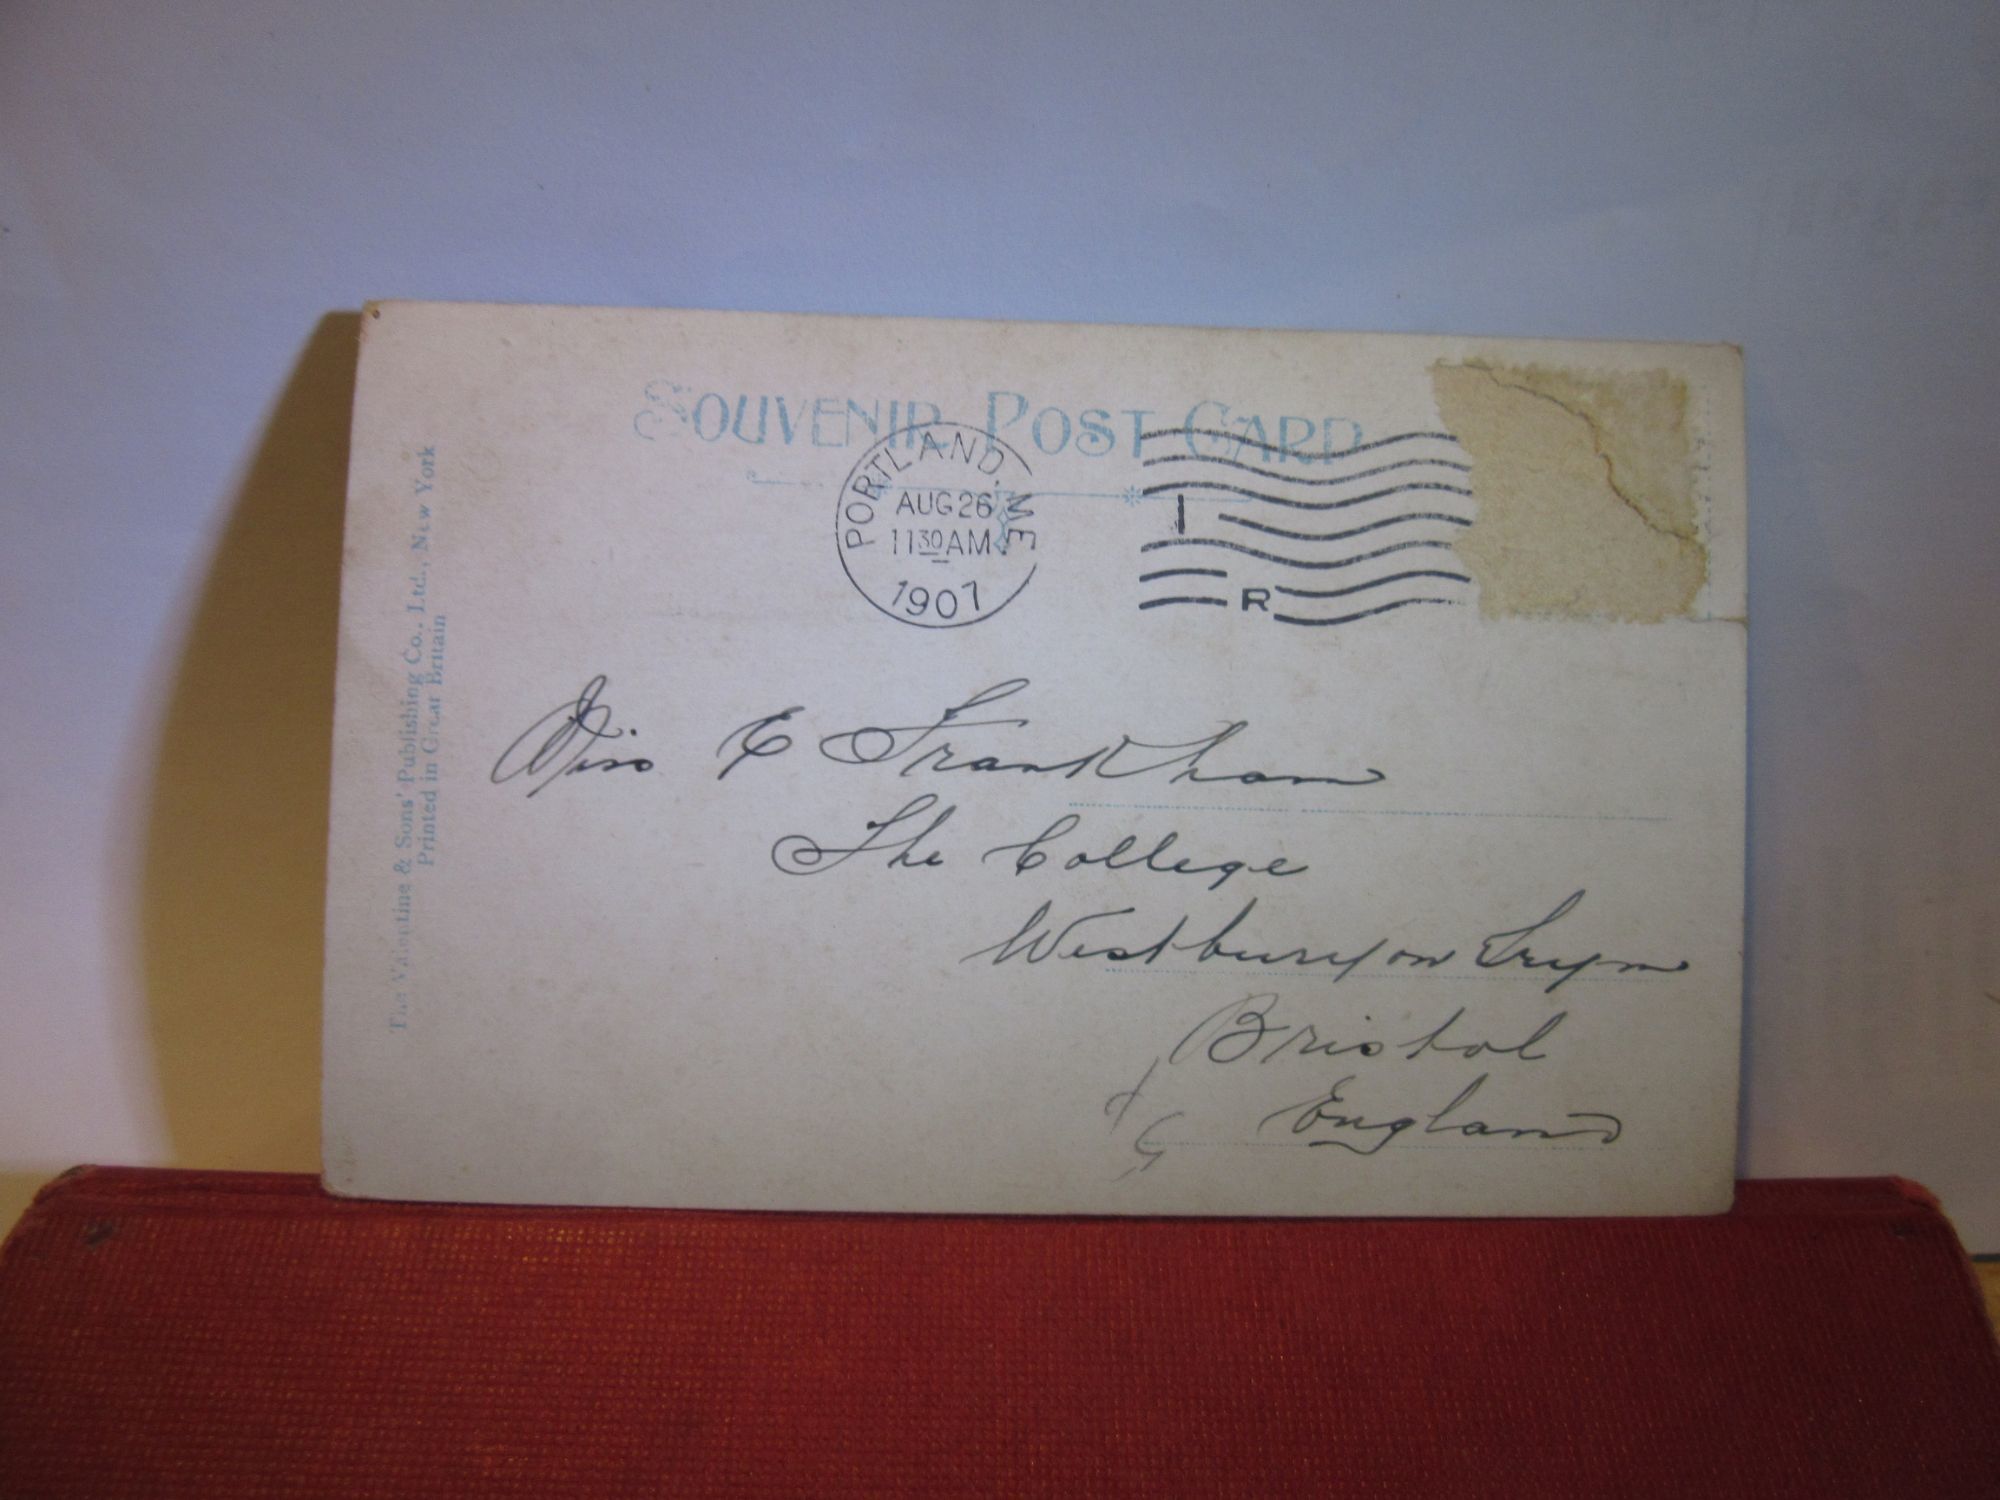 SOUVENIR POST CARD
PORTLAND, ME.
AUG 26
11 30 AM
1907
I
R
The Valentine & Sons' Publishing Co., Ltd., New York
Printed in Great Britain
Miss E Frankham
The College
Westbury on Trym
Bristol
England